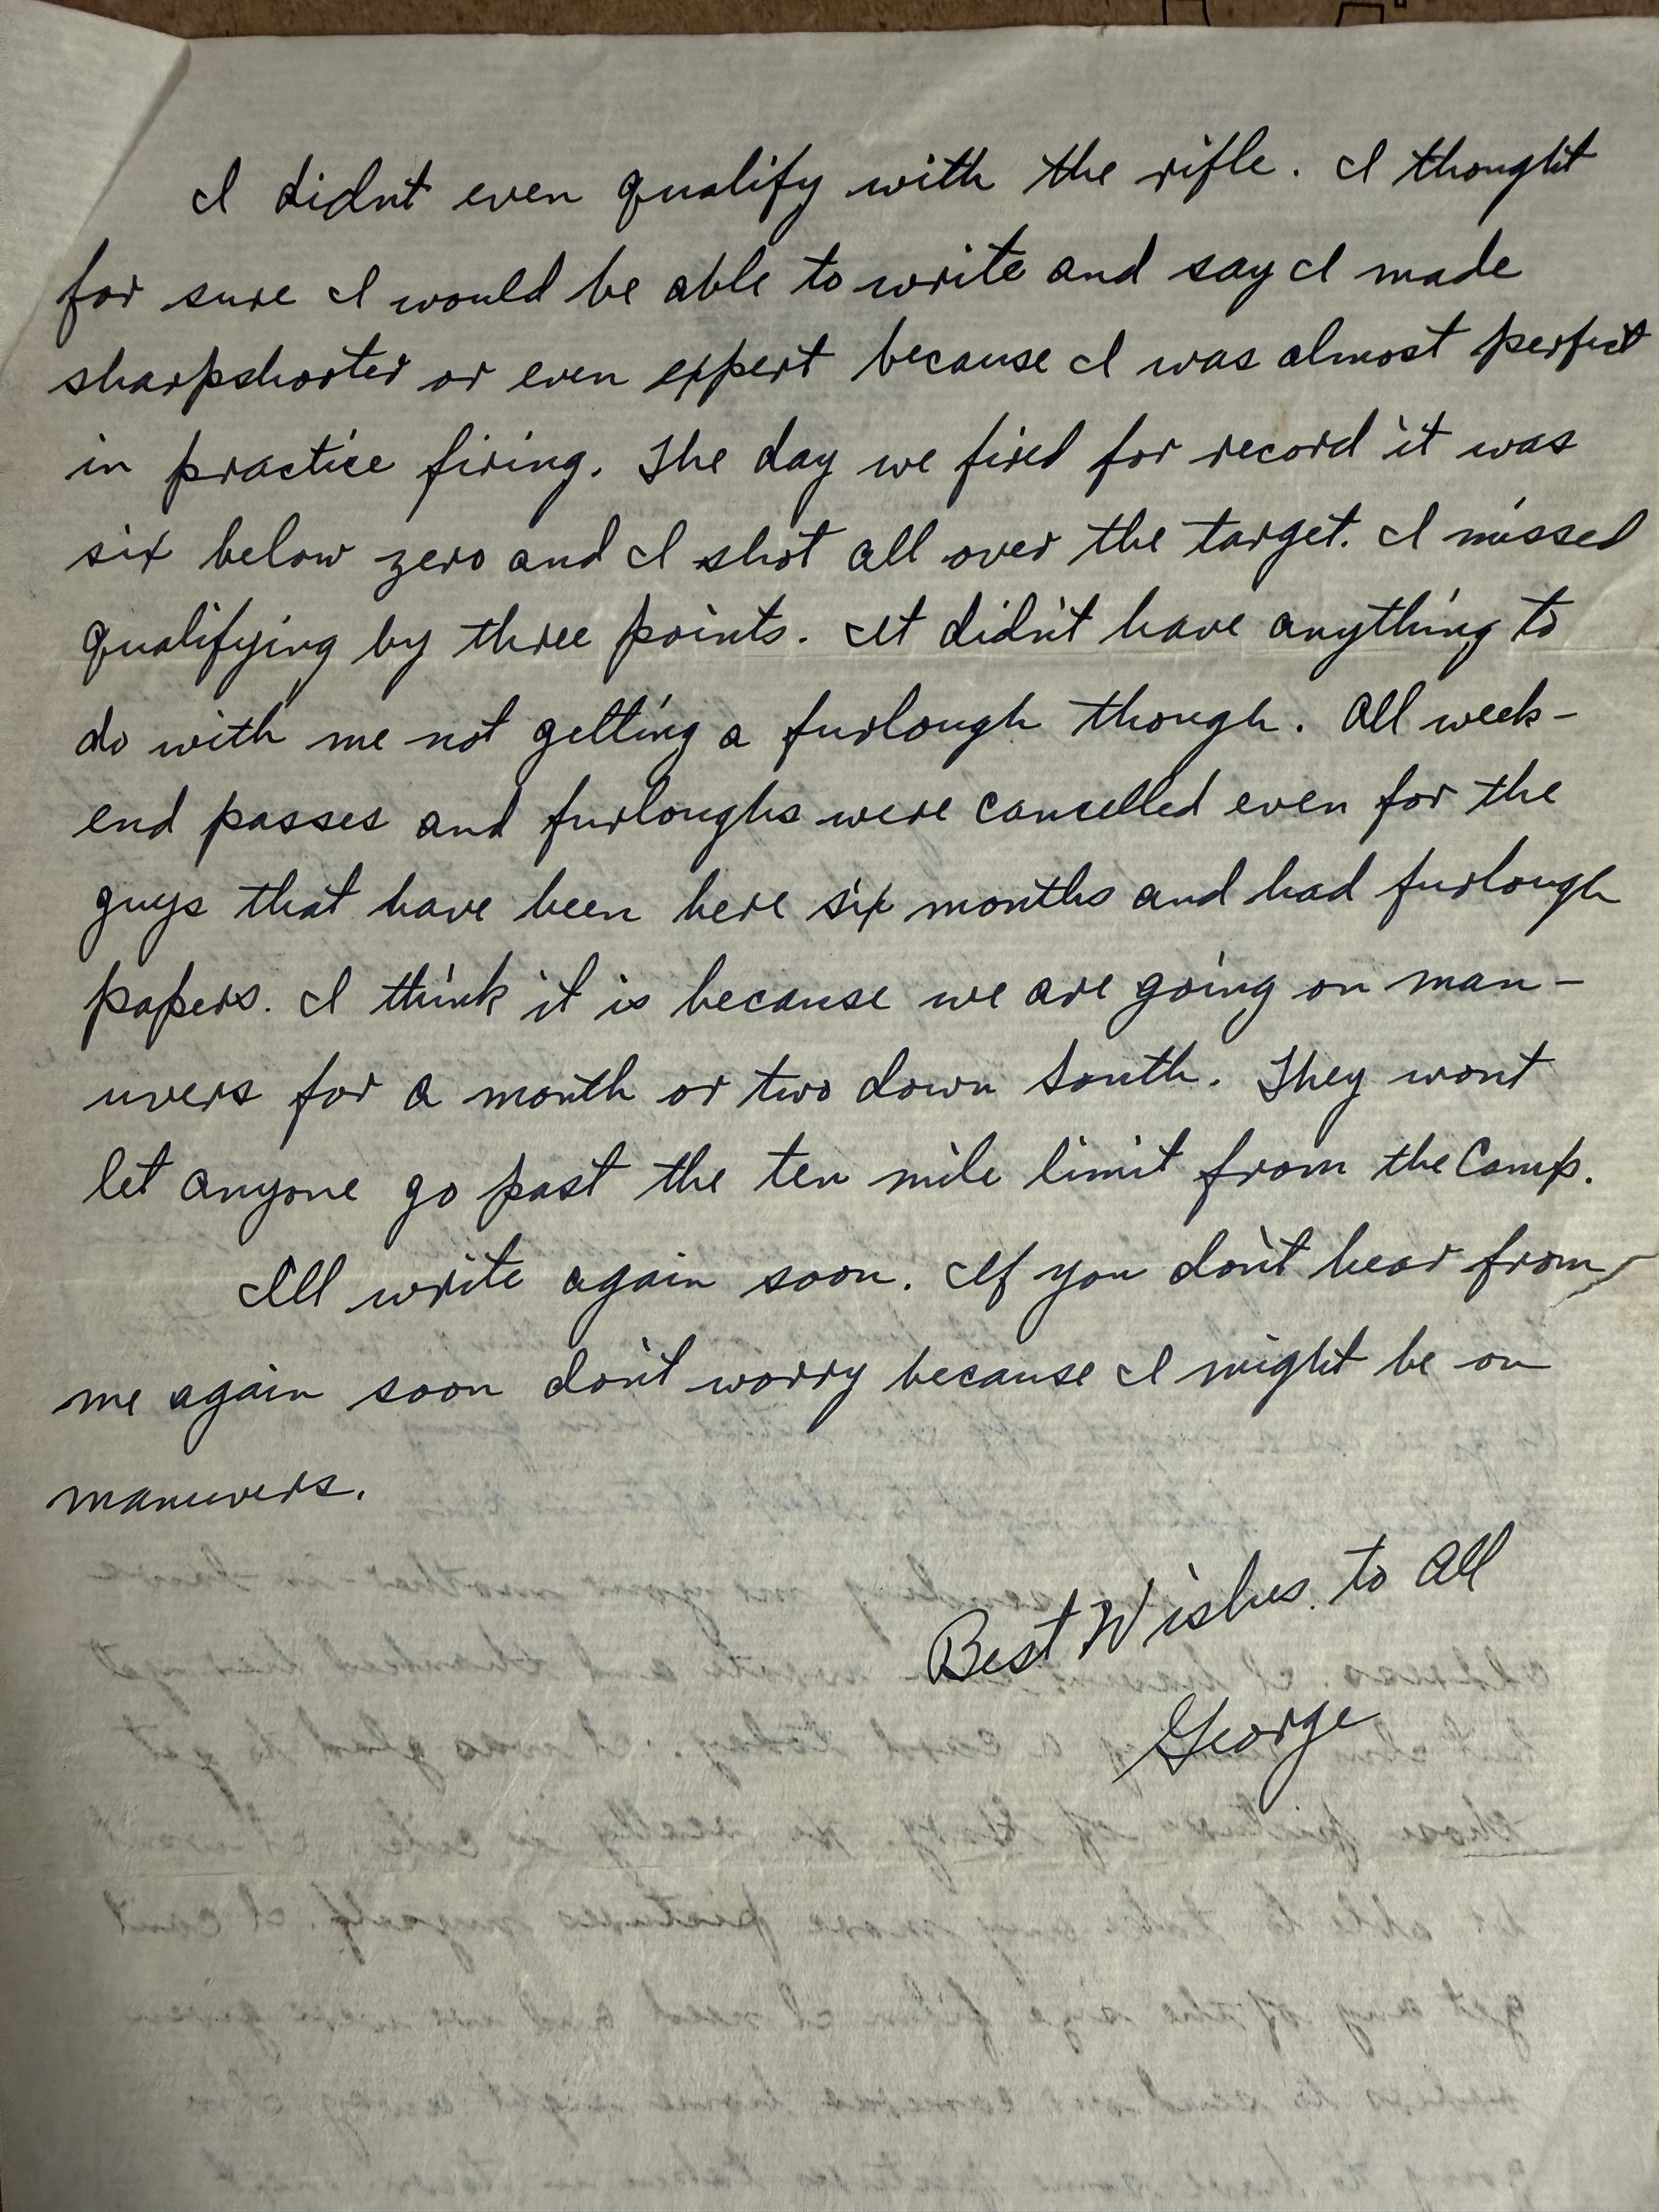 I didnt even qualify with the rifle. I thought
for sure I would be able to write and say I made
sharpshooter or even expert because I was almost perfect
in practice firing. The day we fired for record it was
six below zero and I shot all over the target. I missed
qualifying by three points. It didn't have anything to
do with me not getting a furlough though. All week-
end passes and furloughs were cancelled even for the
guys that have been here six months and had furlough
papers. I think it is because we are going on man-
uvers for a month or two down South. They wont
let anyone go past the ten mile limit from the Camp.
I'll write again soon. If you don't hear from
me again soon don't worry because I might be on
manuvers.
Best Wishes to All
George